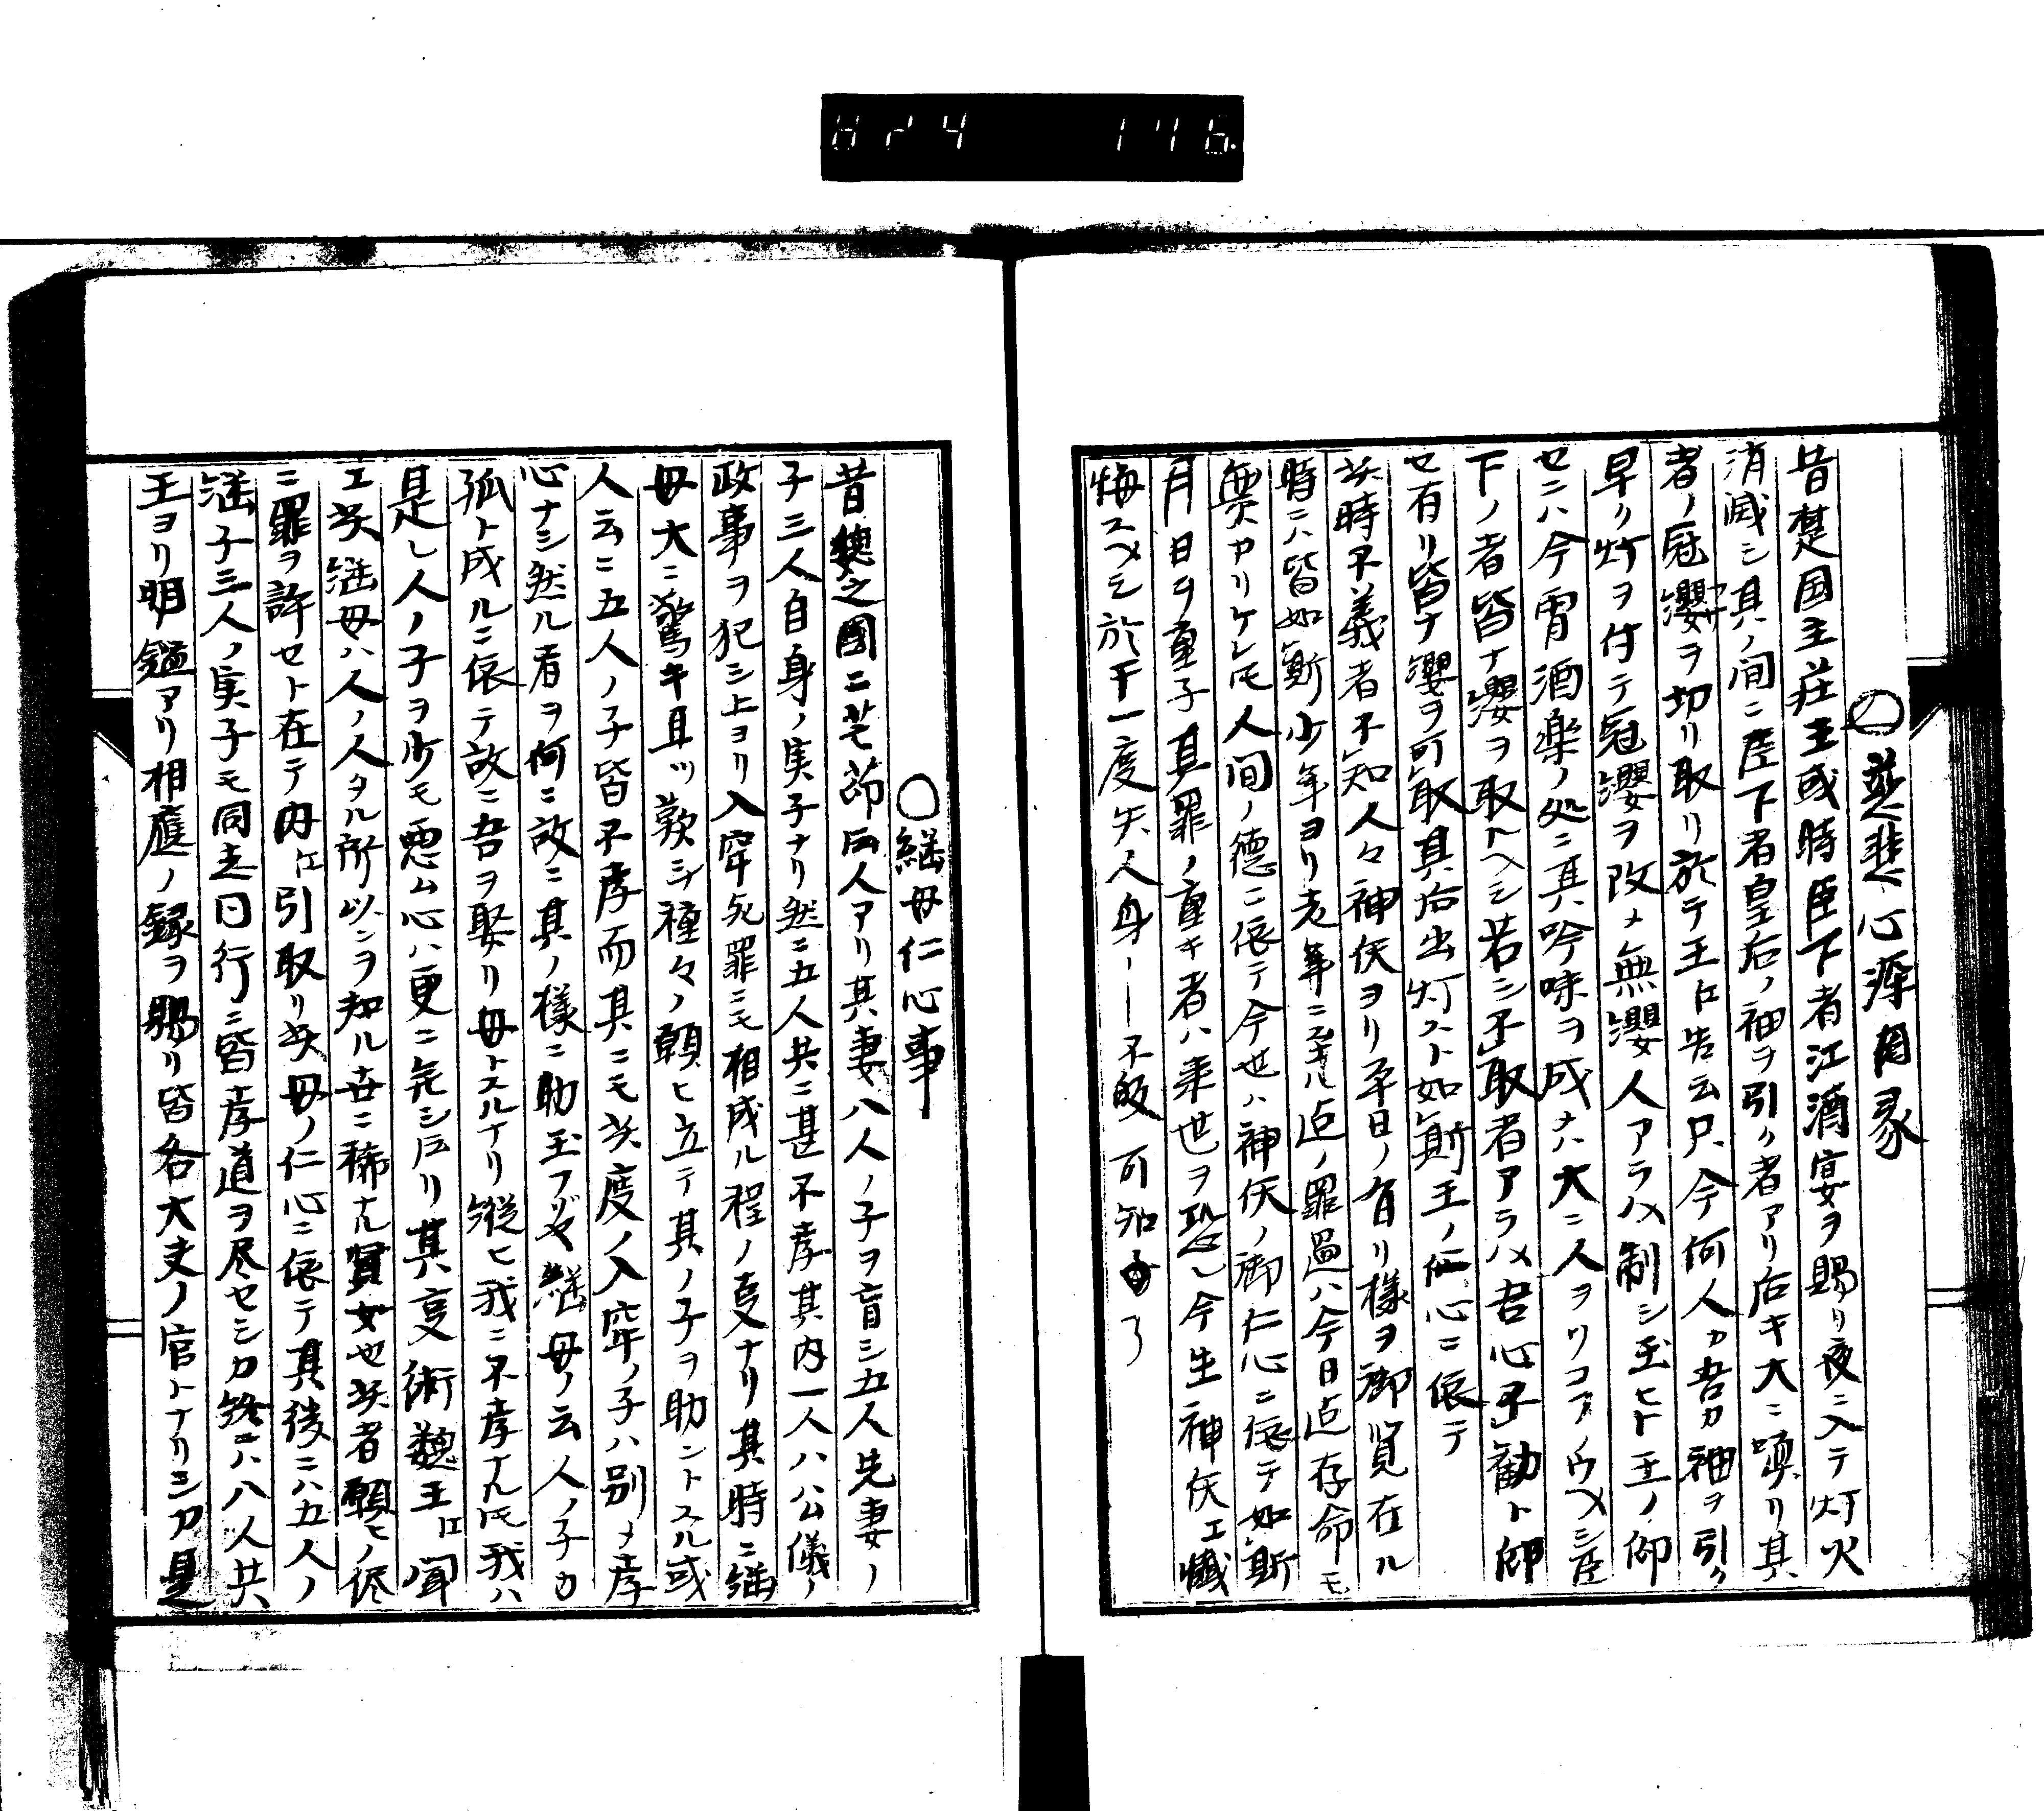 824 176.
〇慈悲心深因縁
昔楚国主荘王或時臣下者江酒宴ヲ賜リ夜ニ入テ灯火
消滅シ其ノ間ニ臣下者皇后ノ袖ヲ引ク者アリ后キ大ニ嗔リ其
者ノ冠纓ヲ切リ取リ於テ王江告云只今何人カ吾カ袖ヲ引ク
早ク灯ヲ付テ冠纓ヲ改メ無纓人アラハ制シ玉ヒト王ノ仰
セニハ今宵酒楽ノ処ニ其吟味ヲ成サハ大ニ人ヲリコアノウヘシ臣
下ノ者皆ナ纓ヲ取ヘシ若シ不取者アラハ君心不勧ト仰
セ有リ皆ナ纓ヲ可取其后出灯ストト如斯王ノ仁心ニ依テ
其時不義者不知人々神仏ヨリ平日ノ有リ様ヲ御覧在ル
時ニハ皆如斯少年ヨリ老年ニ至ル迠ノ罪過ハ今日迠存命モ
無アリケレ𪜈人間ノ徳ニ依テ今世ハ神仏ノ御仁心ニ依テ如斯
月日ヲ重子其罪ノ重キ者ハ来世ヲ恐レ今生神仏エ懺
悔スヘシ於于一度失人身ーー不皈可知也了
〇継母仁心事
昔魏之國ニ芒茆后人アリ其妻八人ノ子ヲ育シ五人先妻ノ
子三人自身ノ実子ナリ然ニ五人共ニ甚不孝其内一人ハ公儀ノ
政事ヲ犯シ上ヨリ入牢死罪ニモ相成ル程ノ㕝ナリ其時ニ継
母大ニ驚キ且ツ歎シテ種々ノ願ヒ立テ其ノ子ヲ助ントスル或
人云ニ五人ノ子皆不孝而其ニモ其度ノ入牢ノ子ハ別メ孝
心ナシ然ル者ヲ何ニ故ニ其ノ様ニ助玉フヤ継母ノ云人ノ子カ
孤ト成ルニ依テ故ニ吾ヲ娶リ母トスルナリ縦ヒ我ニ不孝ナル𪜈我ハ
是レ人ノ子ヲ少モ悪ム心ハ更ニ无シ𪜈リ其㕝術魏王江聞
エ其継母ハ人ノ人タル所以ンヲ知ル世ニ稀ナル賢女也其者願ヒノ侭
ニ罪ヲ許セト在テ内江引取リ其母ノ仁心ニ依テ其後ニハ五人ノ
継子三人ノ実子モ同志同行ニ皆孝道ヲ尽セシカ終ニハ八人共
王ヨリ明鑑アリ相應ノ録ヲ賜リ皆各大夫ノ官トナリシカ是